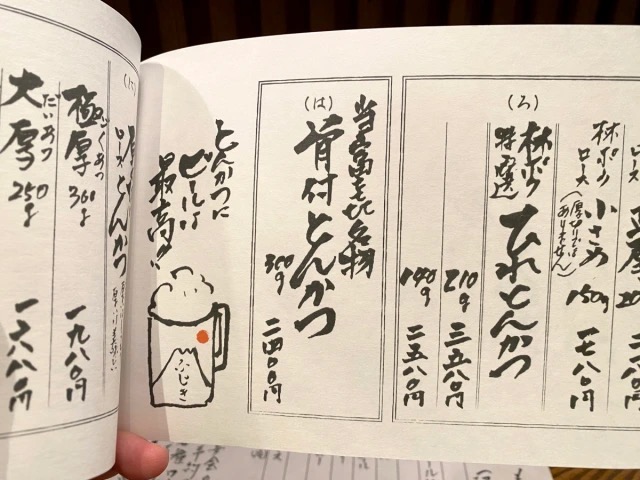 (ろ)
林ボク
ロース
小さめ
(厚切りは
ありません)
150g
一七八〇円
林ボク
特選
ひれとんかつ
210g
三五八〇円
140g
二五八〇円
(は)
当富士㐂名物
骨付とんかつ
300g
二四〇〇円
とんかつに
ビールは
最高!!
ふじき
(に)
ロースとんかつ
極厚
ごくあつ
360g
一九八〇円
大厚
だいあつ
250g
一六八〇円